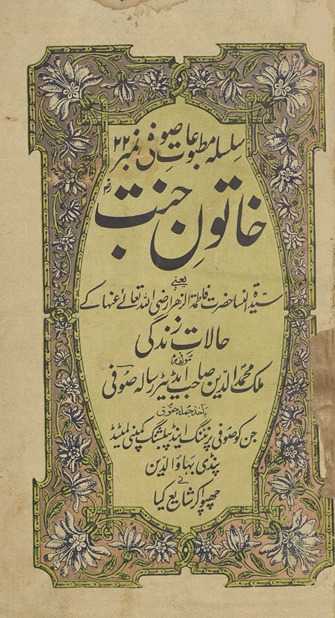 سلسلہ مطبوعات صوفی نمبر ۲۲
خاتونِ جنت
یعنے
سیدۃ النسا حضرت فاطمۃ الزہرا رضی اللہ تعالےٰ عنہا کے
حالات زندگی
ملک محمد الدین صاحب ایڈیٹر رسالہ صوفی
جن کو صوفی پرنٹنگ اینڈ پبلشنگ کمپنی لمیٹڈ
پنڈی بہاؤالدین
نے
چھپوا کر شایع کیا